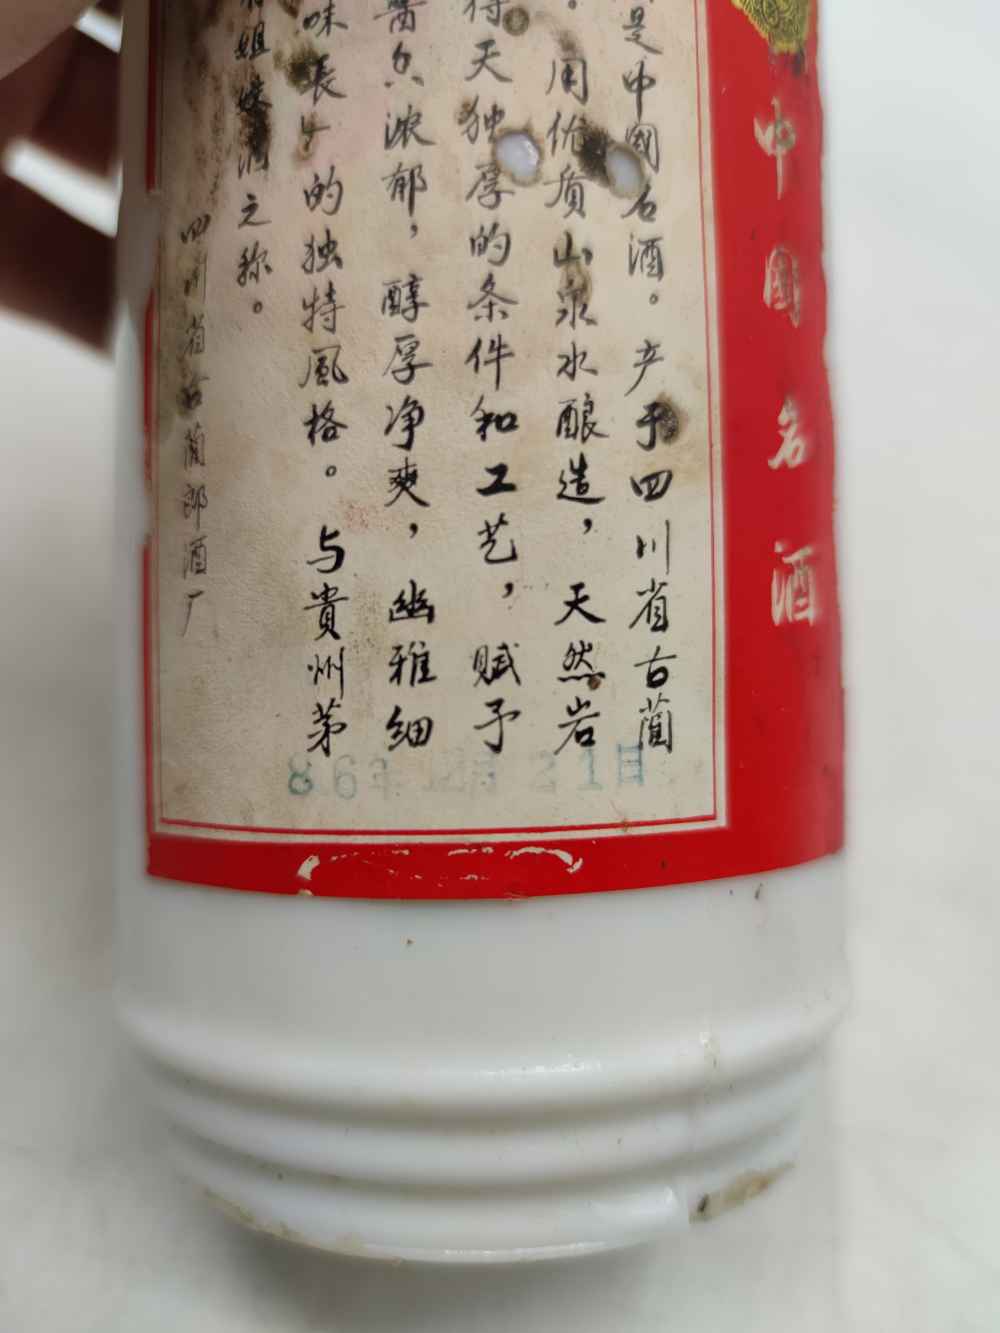 中國名酒
是中國名酒。产于四川省古蔺
。用优质山泉水酿造，天然岩
得天独厚的条件和工艺，赋予
酱香浓郁，醇厚净爽，幽雅细
味長」的独特風格。与貴州茅
姐妹酒之称。
四川省古蔺郎酒厂
86年12月21日